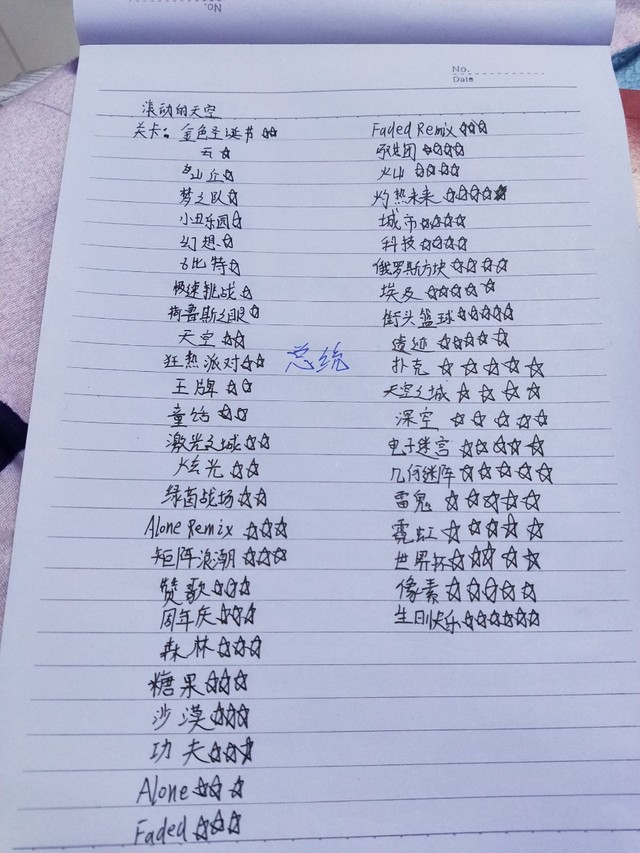 No.
No.
Date
滚动的天空
关卡:金色圣诞节☆☆
云☆
山丘☆
梦之队☆
小丑乐园☆
幻想☆
8比特☆
极速挑战☆
荷鲁斯之眼☆
天空☆☆
狂热派对☆☆
王牌☆☆
童话☆☆
激光之城☆☆
炫光☆☆
绿茵战场☆☆
Alone Remix ☆☆☆
矩阵浪潮☆☆☆
赞歌☆☆☆
周年庆☆☆☆
森林☆☆☆
糖果☆☆☆
沙漠☆☆☆
功夫☆☆☆
Alone☆☆☆
Faded☆☆☆
总统
Faded Remix☆☆☆
团☆☆☆☆
火山☆☆☆☆
灼热未来☆☆☆☆★
城市☆☆☆☆
科技☆☆☆☆
俄罗斯方块☆☆☆☆
埃及☆☆☆☆☆
街头篮球☆☆☆☆☆
遗迹☆☆☆☆☆
扑克☆☆☆☆☆
天空之城☆☆☆☆
深空☆☆☆☆☆
电子迷宫☆☆☆☆☆
几何迷阵☆☆☆☆☆
雷鬼☆☆☆☆☆
霓虹☆☆☆☆☆
世界杯☆☆☆☆☆
像素☆☆☆☆☆
生日快乐☆☆☆☆☆☆